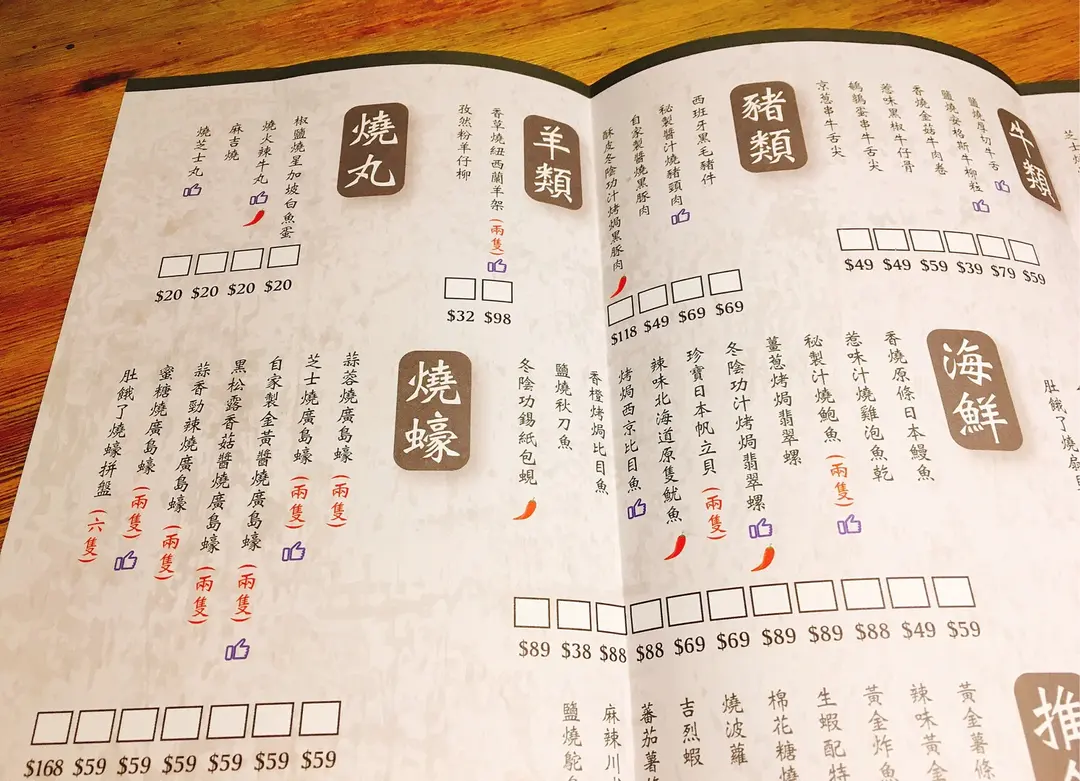 牛類
鹽燒厚切牛舌
鹽燒安格斯牛柳粒
香燒金菇牛肉卷
惹味黑椒牛仔骨
鵪鶉蛋串牛舌尖
京葱串牛舌尖
$49 $49 $59 $39 $79 $59
豬類
西班牙黑毛豬件
秘製醬汁燒豬頸肉
自家製醬燒黑豚肉
酥皮冬陰功汁烤焗黑豚肉
$118 $49 $69 $69
羊類
香草燒紐西蘭羊架(兩隻)
孜然粉羊仔柳
$32 $98
燒丸
椒鹽燒星加坡白魚蛋
燒火辣牛丸
麻吉燒
燒芝士丸
$20 $20 $20 $20
肚餓了燒
海鮮
香燒原條日本鰻魚
惹味汁燒雞泡魚乾
秘製汁燒鮑魚(兩隻)
薑葱烤焗翡翠螺
冬陰功汁烤焗翡翠螺
珍寶日本帆立貝(兩隻)
辣味北海道原隻魷魚
烤焗西京比目魚
香橙烤焗比目魚
鹽燒秋刀魚
冬陰功錫紙包蜆
$89 $38 $88 $88 $69 $69 $89 $89 $88 $49 $59
燒蠔
蒜蓉燒廣島蠔(兩隻)
芝士燒廣島蠔(兩隻)
自家製金黃醬燒廣島蠔
黑松露香菇醬燒廣島蠔(兩隻)
蒜香勁辣燒廣島蠔(兩隻)
蜜糖燒廣島蠔(兩隻)
肚餓了燒蠔拼盤(六隻)
$168 $59 $59 $59 $59 $59 $59
推
黃金薯條
辣味黃金
黃金炸魚
生蝦配特
棉花糖燒
燒波蘿
吉烈蝦
蕃茄薯
麻辣川
鹽燒鴕